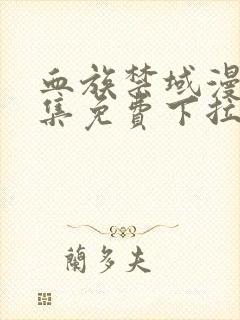 血族禁域漫
集免費下拉
蘭多夫